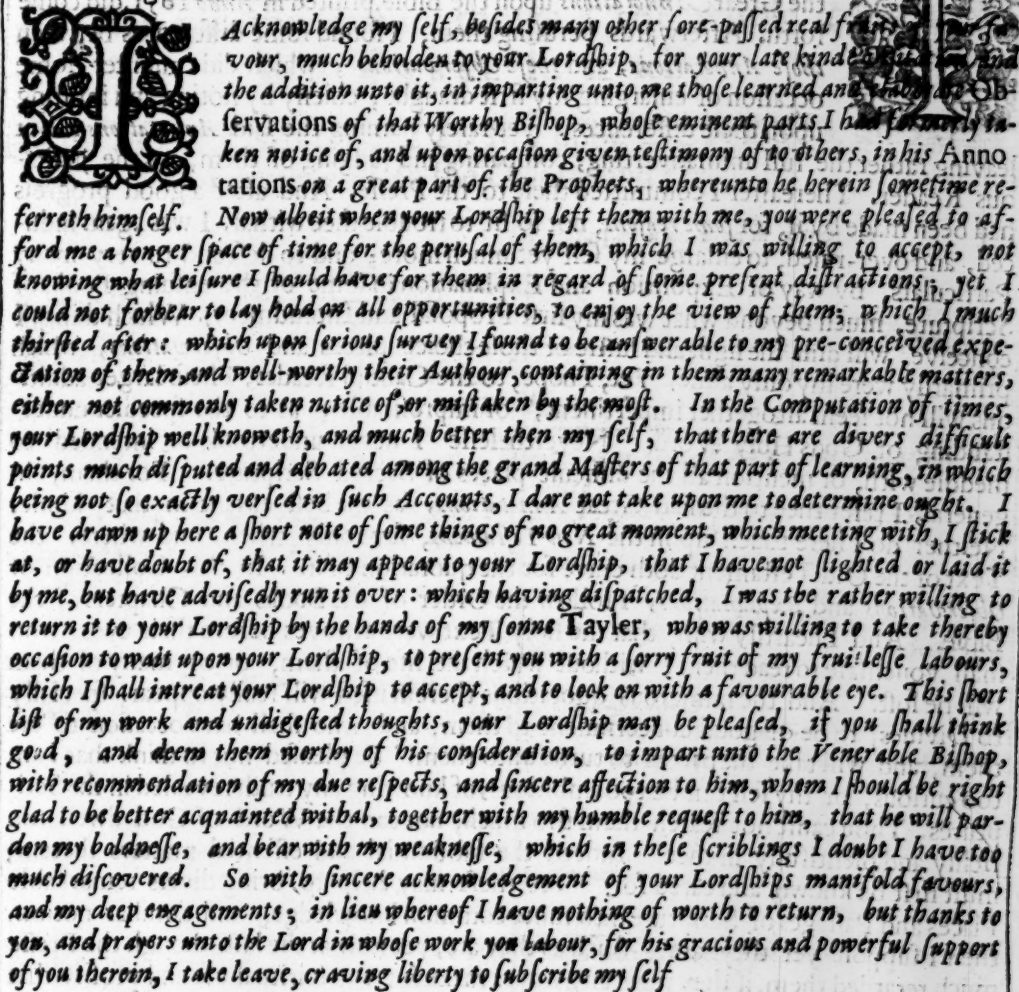 I Acknowledge my ſelf, beſides many other fore-paſſed real
vour, much beholden to your Lordſhip, for your late kinde and
the addition unto it, in imparting unto me thoſe learned and Ob-
ſervations of that Worthy Biſhop, whoſe eminent parts I had formerly ta-
ken notice of, and upon occaſion given teſtimony of to others, in his Anno
tations on a great part of the Prophets, whereunto he herein ſometime re-
ferreth himſelf. Now albeit when your Lordſhip left them with me, you were pleaſed to af-
ford me a longer ſpace of time for the peruſal of them, which I was willing to accept, not
knowing what leiſure I ſhould have for them in regard of ſome preſent diſtractions; yet I
could not forbear to lay hold on all opportunities, to enjoy the view of them; which I much
thirſted after: which upon ſerious ſurvey I found to be anſwerable to my pre-conceived expe-
ctation of them, and well-worthy their Authour, containing in them many remarkable matters,
either not commonly taken notice of, or miſtaken by the moſt. In the Computation of times,
your Lordſhip well knoweth, and much better then my ſelf, that there are divers difficult
points much diſputed and debated among the grand Maſters of that part of learning, in which
being not ſo exactly verſed in ſuch Accounts, I dare not take upon me to determine ought. I
have drawn up here a ſhort note of ſome things of no great moment, which meeting with, I ſtick
at, or have doubt of, that it may appear to your Lordſhip, that I have not ſlighted or laid it
by me, but have adviſedly run it over: which having diſpatched, I was the rather willing to
return it to your Lordſhip by the hands of my ſonne Tayler, who was willing to take thereby
occaſion to wait upon your Lordſhip, to preſent you with a ſorry fruit of my fruitleſſe labours,
which I ſhall intreat your Lordſhip to accept, and to look on with a favourable eye. This ſhort
liſt of my work and undigeſted thoughts, your Lordſhip may be pleaſed, if you ſhall think
good, and deem them worthy of his conſideration, to impart unto the Venerable Biſhop,
with recommendation of my due reſpects, and ſincere affection to him, whom I ſhould be right
glad to be better acqnainted withal, together with my humble requeſt to him, that he will par-
don my boldneſſe, and bear with my weakneſſe, which in theſe ſcriblings I doubt I have too
much diſcovered. So with ſincere acknowledgement of your Lordſhips manifold favours,
and my deep engagements; in lieu whereof I have nothing of worth to return, but thanks to
you, and prayers unto the Lord in whoſe work you labour, for his gracious and powerful ſupport
of you therein, I take leave, craving liberty to ſubſcribe my ſelf